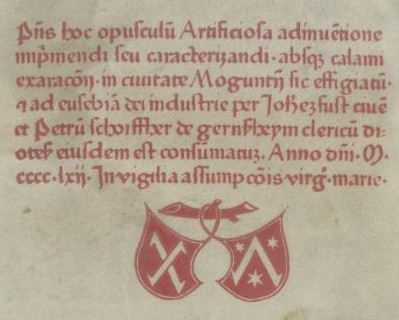 Pñs hoc opusculū Artificiosa adinuētione
imp̄mendi seu caracterizandi · absqꝫ calami
exaracōn̄ · in ciuitate Moguntn̄ sic effigiatū ·
⁊ ad eusebiā dei industrie per Johēꝫ fust ciuē
et Petrū schoiffher de gernsheym clericū di-
oteꝭ eiusdem est consūmatuꝫ . Anno dn̄i · M ·
cccc · lxij · In vigilia assumpcōis virgꝭ · marie ·